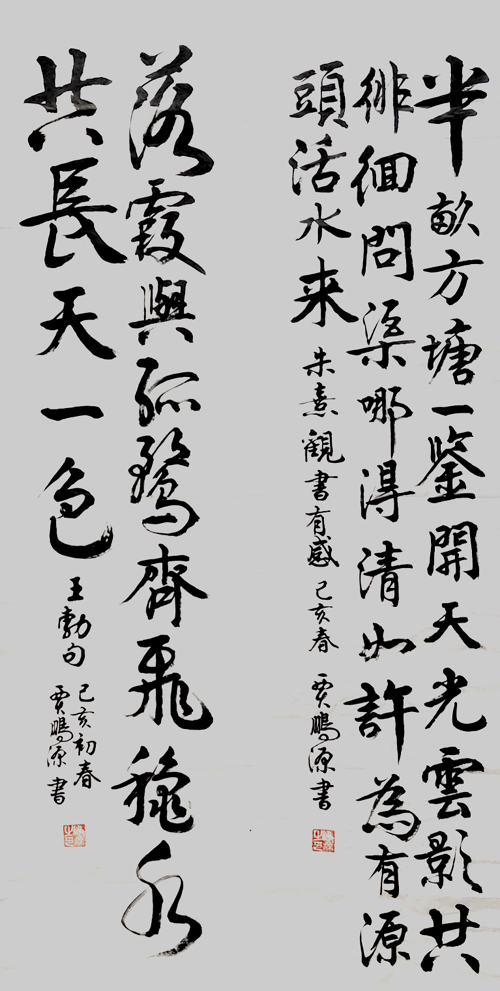 半畝方塘一鑒開天光雲影共
徘徊問渠哪得清如許為有源
頭活水来 朱熹觀書有感 己亥春 賈鵬源書
落霞與孤鶩齊飛穐水
共長天一色 王勃句
己亥初春
賈鵬源書